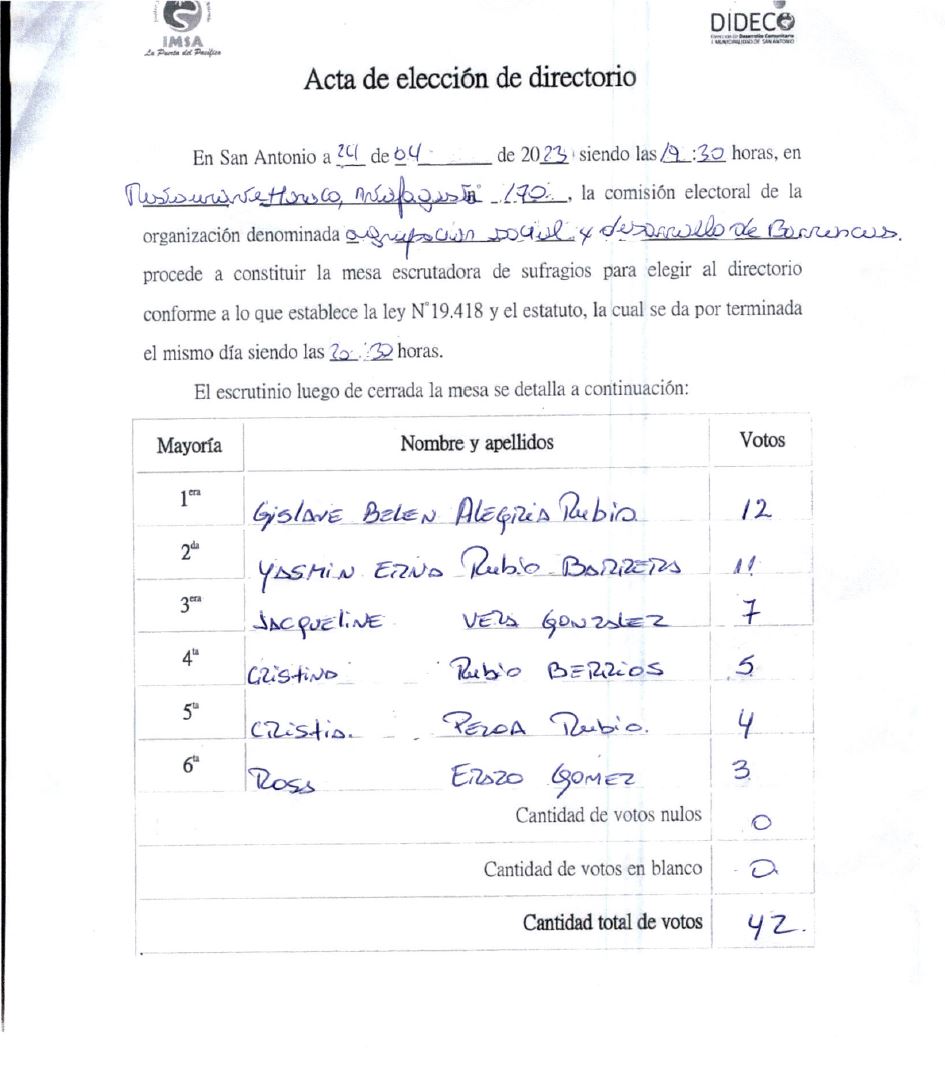 IMSA
La Puerta del Pacífico
DIDECO
Dirección de Desarrollo Comunitario
I. MUNICIPALIDAD DE SAN ANTONIO
Acta de elección de directorio
En San Antonio a 24 de 04 de 2023 siendo las 19:30 horas, en
170, la comisión electoral de la
organización denominada agrupación social y desarrollo de Barrancas.
procede a constituir la mesa escrutadora de sufragios para elegir al directorio
conforme a lo que establece la ley N°19.418 y el estatuto, la cual se da por terminada
el mismo día siendo las 20:30 horas.
El escrutinio luego de cerrada la mesa se detalla a continuación:
Mayoría Nombre y apellidos Votos
1era Gislave BELEN ALEGRIA Rubio 12
2da YASMIN ERNA Rubio BARRERA 11
3era JACQUELINE VERA GONZALEZ 7
4ta CRistiNA Rubio BERRIOS 5
5ta CRistia. PEROA Rubio. 4
6ta ROSA ERAZO GOMEZ 3
Cantidad de votos nulos 0
Cantidad de votos en blanco 0
Cantidad total de votos 42.